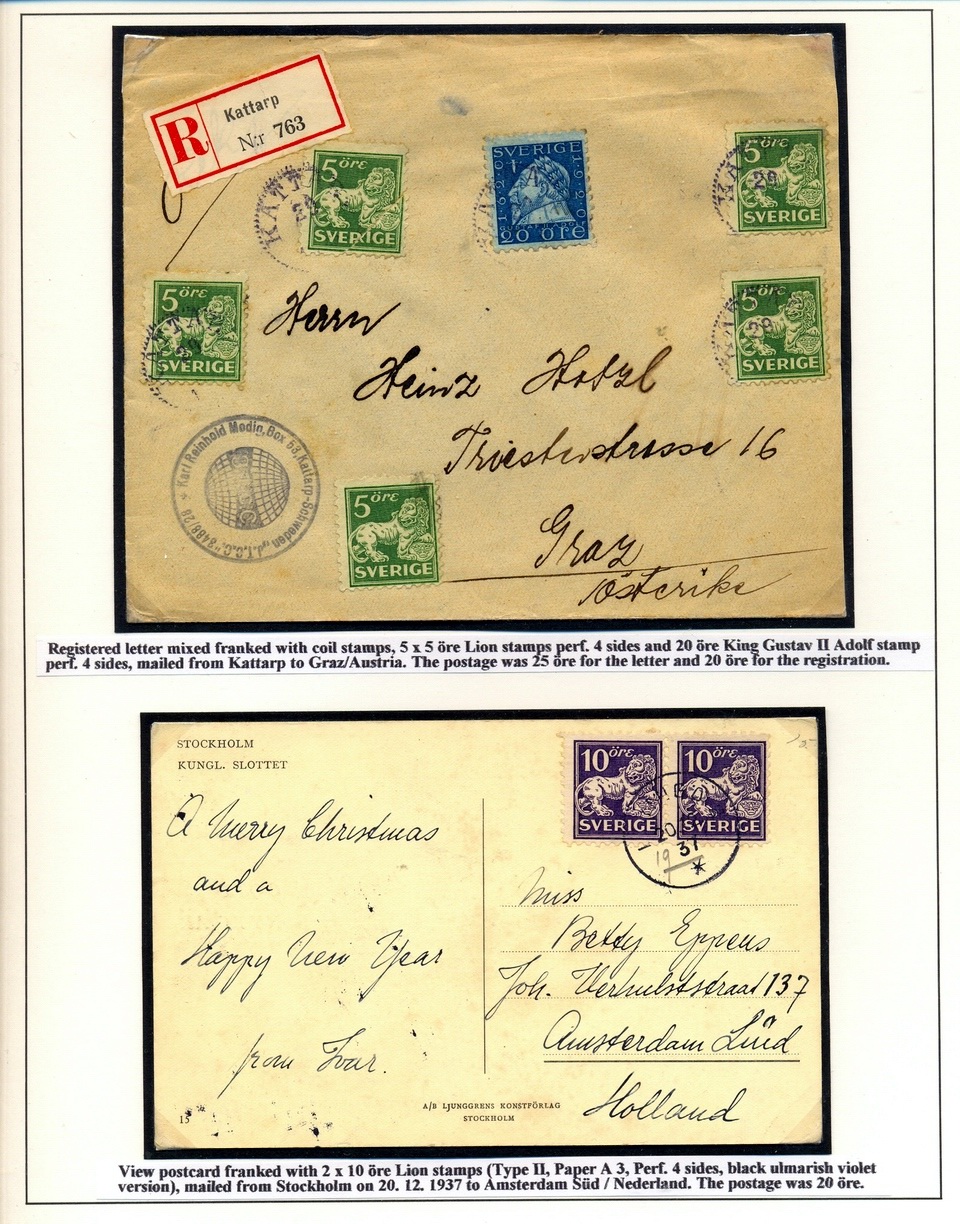 R
Kattarp
N:r 763
KATTARP
5 öre
SVERIGE
SVERIGE
1620 1920
20 ÖRE
5 öre
SVERIGE
29
5 öre
SVERIGE
5 öre
SVERIGE
29
Herrn
Heinz Hotzl
Triesterstrasse 16
Graz
Österike
Karl Reinhold Modig, Box 53, Kattarp-Schweden, „J.I.C.C." 8488/28
5 öre
SVERIGE
Registered letter mixed franked with coil stamps, 5 x 5 öre Lion stamps perf. 4 sides and 20 öre King Gustav II Adolf stamp
perf. 4 sides, mailed from Kattarp to Graz/Austria. The postage was 25 öre for the letter and 20 öre for the registration.
STOCKHOLM
KUNGL. SLOTTET
10 öre
SVERIGE
10 öre
SVERIGE
20
19 37
A Merry Christmas
and a
Happy New Year
from Ivar.
Miss
Betty Eppens
Joh. Verhulststraat 137
Amsterdam Züid
Holland
A/B LJUNGGRENS KONSTFÖRLAG
STOCKHOLM
15
View postcard franked with 2 x 10 öre Lion stamps (Type II, Paper A 3, Perf. 4 sides, black ulmarish violet
version), mailed from Stockholm on 20. 12. 1937 to Amsterdam Süd / Nederland. The postage was 20 öre.